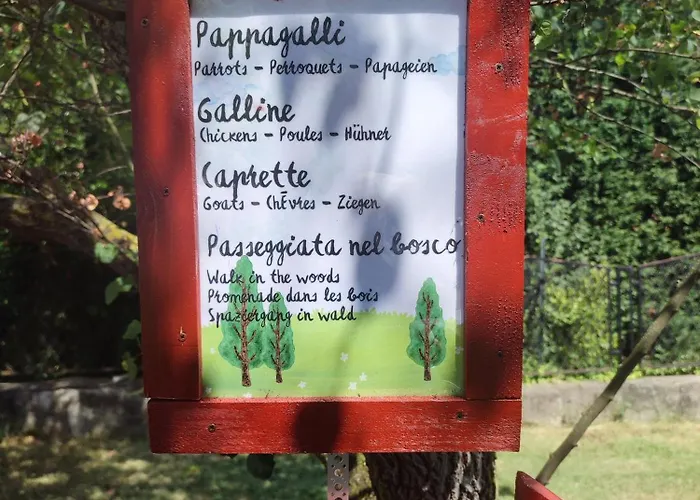 Pappagalli
Parrots - Perroquets - Papageien
Galline
Chickens - Poules - Hühner
Caprette
Goats - ChÈvres - Ziegen
Passeggiata nel bosco
Walk in the woods
Promenade dans les bois
Spaziergang in wald